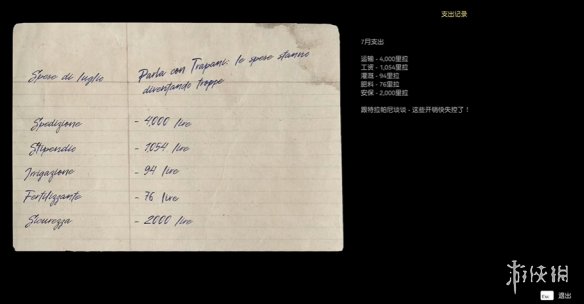 支出记录
Spese di luglio
Parla con Trapani: le spese stanno
diventando troppe
Spedizione - 4,000 lire
Stipendio - 1,054 lire
Irrigazione - 94 lire
Fertilizzante - 76 lire
Sicurezza - 2000 lire
7月支出
运输 - 4,000里拉
工资 - 1,054里拉
灌溉 - 94里拉
肥料 - 76里拉
安保 - 2,000里拉
跟特拉帕尼谈谈 - 这些开销快失控了！
游侠网
Esc 退出